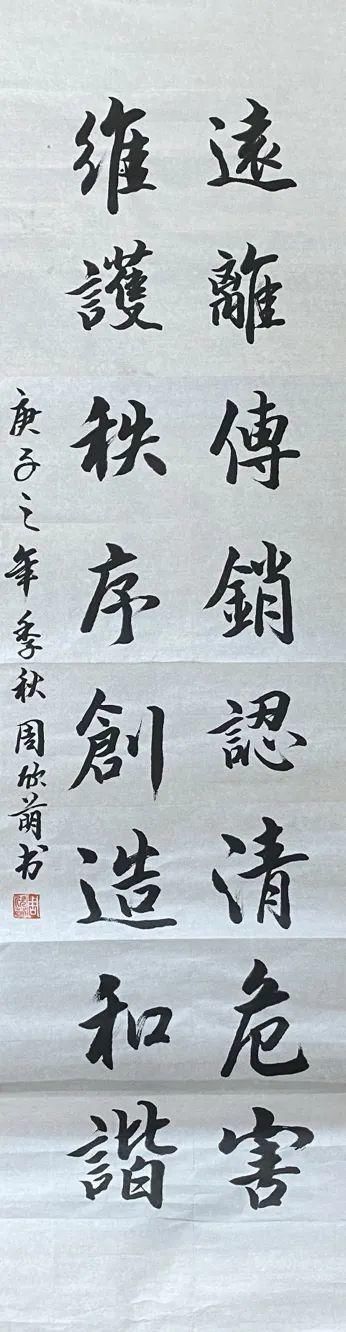 遠離傳銷認清危害
維護秩序創造和諧
庚子之年季秋周欣萌书